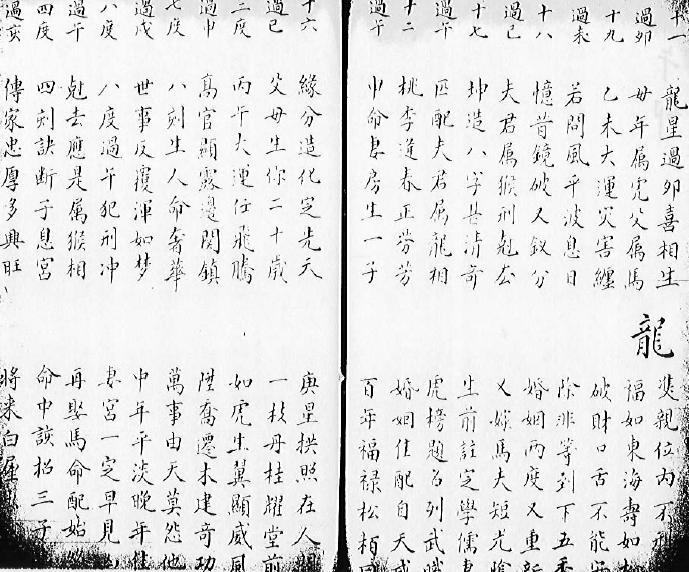 十一 龍星過卯喜相生 雙親位內不刑
過卯 毋年属虎父属馬 福如東海壽如松
十九 乙未大運災害纏 破財口舌不能
過未 若問風平波息日 除非等到下五
十八 憶昔鏡破又釵分 婚姻兩度又重新
過巳 夫君属猴刑尅去 又嫁馬夫短光陰
十七 坤造八字甚清奇 生前註定學儒
過午 匹配夫君属龍相 虎榜題名列武職
十二 桃李逢春正芳芳 婚姻佳配自天成
過午 巾命妻房生一子 百年福禄松栢同
龍
十六 緣分造化定先天 庚星拱照在人間
過巳 父毋生你二十歲 一枝丹桂耀堂前
二度 丙午大運任飛騰 如虎生翼顯威風
過申 高官顯露邊関鎮 陞喬遷木建奇功
七度 八刻生人命奢華 萬事由天莫怨他
過戌 世事反覆渾如梦 中年平淡晚年佳
八度 八度過午犯刑冲 妻宮一定早見
過午 尅去應是属猴相 再娶馬命配始
四度 四刻訣断子息宮 命中該招三子
過亥 傳家忠厚多興旺 將来白屋